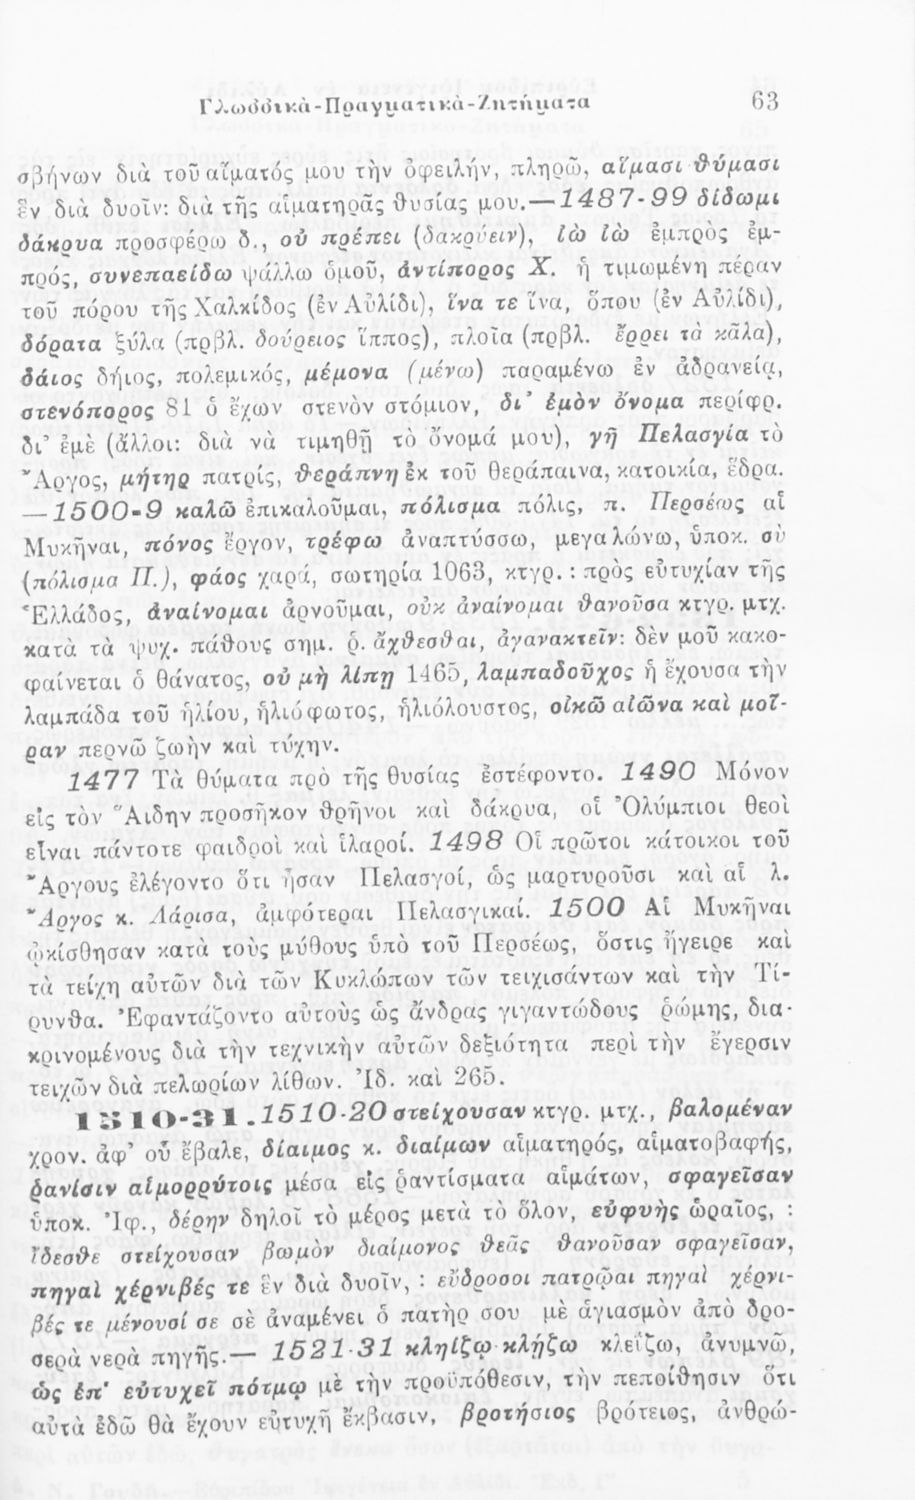 Γλωσσικὰ-Πραγματικὰ-Ζητήματα 63
σβήνων διὰ τοῦ αἵματός μου τὴν ὀφειλήν, πληρῶ, αἵμασι θύμασι
ἓν διὰ δυοῖν: διὰ τῆς αἱματηρᾶς θυσίας μου.—1487-99 δίδωμι
δάκρυα προσφέρω δ., οὐ πρέπει (δακρύειν), ἰὼ ἰὼ ἐμπρὸς ἐμ-
πρός, συνεπαείδω ψάλλω ὁμοῦ, ἀντίπορος Χ. ἡ τιμωμένη πέραν
τοῦ πόρου τῆς Χαλκίδος (ἐν Αὐλίδι), ἵνα τε ἵνα, ὅπου (ἐν Αὐλίδι),
δόρατα ξύλα (πρβλ. δούρειος ἵππος), πλοῖα (πρβλ. ἔρρει τὰ κᾶλα),
δάιος δήιος, πολεμικός, μέμονα (μένω) παραμένω ἐν ἀδρανείᾳ,
στενόπορος 81 ὁ ἔχων στενὸν στόμιον, δι' ἐμὸν ὄνομα περίφρ.
δι' ἐμὲ (ἄλλοι: διὰ νὰ τιμηθῇ τὸ ὄνομά μου), γῆ Πελασγία τὸ
Ἄργος, μήτηρ πατρίς, θεράπνη ἐκ τοῦ θεράπαινα, κατοικία, ἕδρα.
—1500-9 καλῶ ἐπικαλοῦμαι, πόλισμα πόλις, π. Περσέως αἱ
Μυκῆναι, πόνος ἔργον, τρέφω ἀναπτύσσω, μεγαλώνω, ὑποκ. σὺ
(πόλισμα Π.), φάος χαρά, σωτηρία 1063, κτγρ.: πρὸς εὐτυχίαν τῆς
Ἑλλάδος, ἀναίνομαι ἀρνοῦμαι, οὐκ ἀναίνομαι θανοῦσα κτγρ. μτχ.
κατὰ τὰ ψυχ. πάθους σημ. ῥ. ἄχθεσθαι, ἀγανακτεῖν: δὲν μοῦ κακο-
φαίνεται ὁ θάνατος, οὐ μὴ λίπῃ 1465, λαμπαδοῦχος ἡ ἔχουσα τὴν
λαμπάδα τοῦ ἡλίου, ἡλιόφωτος, ἡλιόλουστος, οἰκῶ αἰῶνα καὶ μοῖ-
ραν περνῶ ζωὴν καὶ τύχην.
1477 Τὰ θύματα πρὸ τῆς θυσίας ἐστέφοντο. 1490 Μόνον
εἰς τὸν Ἅιδην προσῆκον θρῆνοι καὶ δάκρυα, οἱ Ὀλύμπιοι θεοὶ
εἶναι πάντοτε φαιδροὶ καὶ ἱλαροί. 1498 Οἱ πρῶτοι κάτοικοι τοῦ
Ἄργους ἐλέγοντο ὅτι ἦσαν Πελασγοί, ὡς μαρτυροῦσι καὶ αἱ λ.
Ἄργος κ. Λάρισα, ἀμφότεραι Πελασγικαί. 1500 Αἱ Μυκῆναι
ᾠκίσθησαν κατὰ τοὺς μύθους ὑπὸ τοῦ Περσέως, ὅστις ἤγειρε καὶ
τὰ τείχη αὐτῶν διὰ τῶν Κυκλώπων τῶν τειχισάντων καὶ τὴν Τί-
ρυνθα. Ἐφαντάζοντο αὐτοὺς ὡς ἄνδρας γιγαντώδους ῥώμης, δια-
κρινομένους διὰ τὴν τεχνικὴν αὐτῶν δεξιότητα περὶ τὴν ἔγερσιν
τειχῶν διὰ πελωρίων λίθων. Ἰδ. καὶ 265.
1510-31. 1510-20 στείχουσαν κτγρ. μτχ., βαλομέναν
χρον. ἀφ' οὗ ἔβαλε, δίαιμος κ. διαίμων αἱματηρός, αἱματοβαφής,
ῥανίσιν αἱμορρύτοις μέσα εἰς ῥαντίσματα αἱμάτων, σφαγεῖσαν
ὑποκ. Ἰφ., δέρην δηλοῖ τὸ μέρος μετὰ τὸ ὅλον, εὐφυὴς ὡραῖος, :
ἴδεσθε στείχουσαν βωμὸν διαίμονος θεᾶς θανοῦσαν σφαγεῖσαν,
πηγαὶ χέρνιβές τε ἓν διὰ δυοῖν, : εὔδροσοι πατρῷαι πηγαὶ χέρνι-
βές τε μένουσί σε σὲ ἀναμένει ὁ πατήρ σου μὲ ἁγιασμὸν ἀπὸ δρο-
σερὰ νερὰ πηγῆς.— 1521-31 κληίζω κλήζω κλεΐζω, ἀνυμνῶ,
ὡς ἐπ' εὐτυχεῖ πότμῳ μὲ τὴν προϋπόθεσιν, τὴν πεποίθησιν ὅτι
αὐτὰ ἐδῶ θὰ ἔχουν εὐτυχῆ ἔκβασιν, βροτήσιος βρότειος, ἀνθρώ-